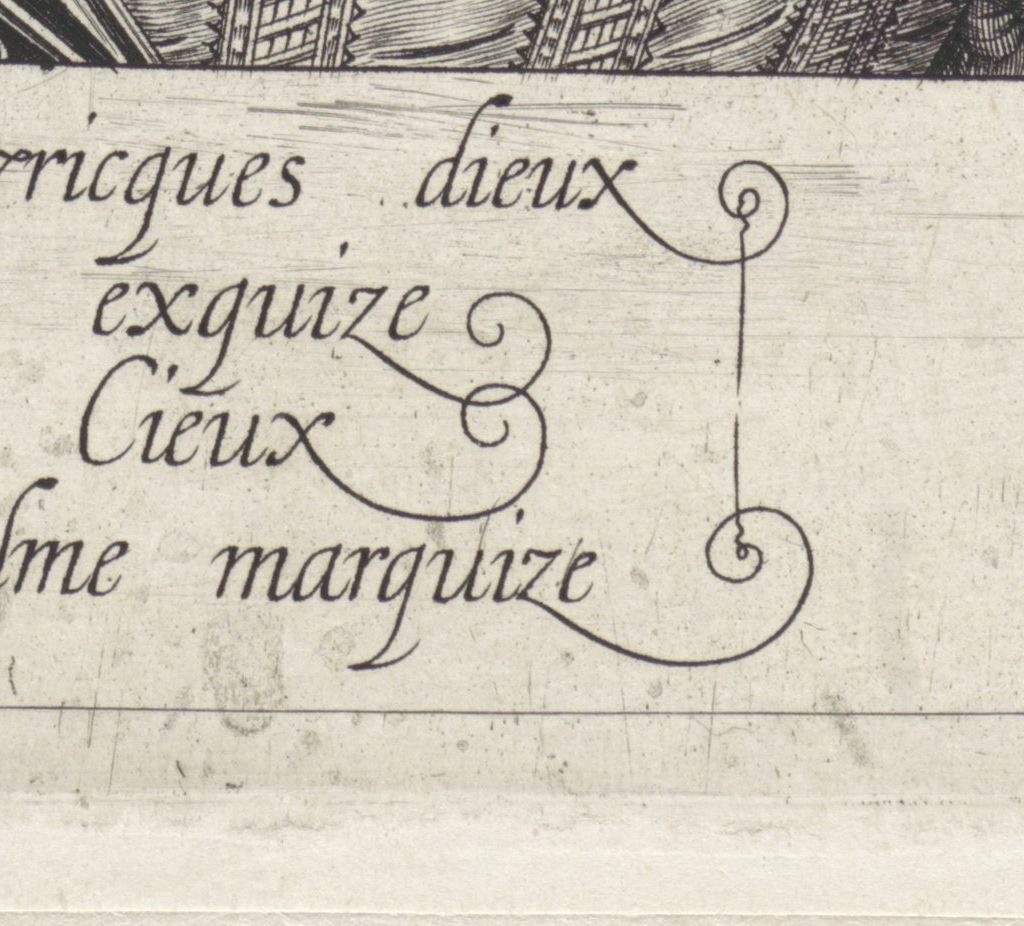 ricques dieux
exquize
Cieux
lme marquize